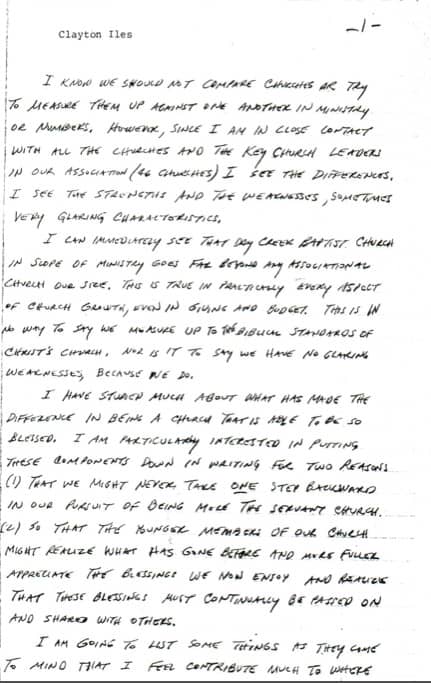 -1-
Clayton Iles
I KNOW WE SHOULD NOT COMPARE CHURCHES OR TRY
TO MEASURE THEM UP AGAINST ONE ANOTHER IN MINISTRY
OR NUMBERS. HOWEVER, SINCE I AM IN CLOSE CONTACT
WITH ALL THE CHURCHES AND THE KEY CHURCH LEADERS
IN OUR ASSOCIATION (46 CHURCHES) I SEE THE DIFFERENCES.
I SEE THE STRENGTHS AND THE WEAKNESSES, SOMETIMES
VERY GLARING CHARACTERISTICS.
I CAN IMMEDIATELY SEE THAT DRY CREEK BAPTIST CHURCH
IN SCOPE OF MINISTRY GOES FAR BEYOND ANY ASSOCIATIONAL
CHURCH OUR SIZE. THIS IS TRUE IN PRACTICALLY EVERY ASPECT
OF CHURCH GROWTH, EVEN IN GIVING AND BUDGET. THIS IS IN
NO WAY TO SAY WE MEASURE UP TO THE BIBLICAL STANDARDS OF
CHRIST'S CHURCH. NOR IS IT TO SAY WE HAVE NO GLARING
WEAKNESSES, BECAUSE WE DO.
I HAVE STUDIED MUCH ABOUT WHAT HAS MADE THE
DIFFERENCE IN BEING A CHURCH THAT IS ABLE TO BE SO
BLESSED. I AM PARTICULARLY INTERESTED IN PUTTING
THESE COMPONENTS DOWN IN WRITING FOR TWO REASONS
(1) THAT WE MIGHT NEVER TAKE ONE STEP BACKWARD
IN OUR PURSUIT OF BEING MORE THE SERVANT CHURCH.
(2) SO THAT THE YOUNGER MEMBERS OF OUR CHURCH
MIGHT REALIZE WHAT HAS GONE BEFORE AND MORE FULLER
APPRECIATE THE BLESSINGS WE NOW ENJOY AND REALIZE
THAT THESE BLESSINGS MUST CONTINUALLY BE PASSED ON
AND SHARED WITH OTHERS.
I AM GOING TO LIST SOME THINGS AS THEY COME
TO MIND THAT I FEEL CONTRIBUTE MUCH TO WHERE